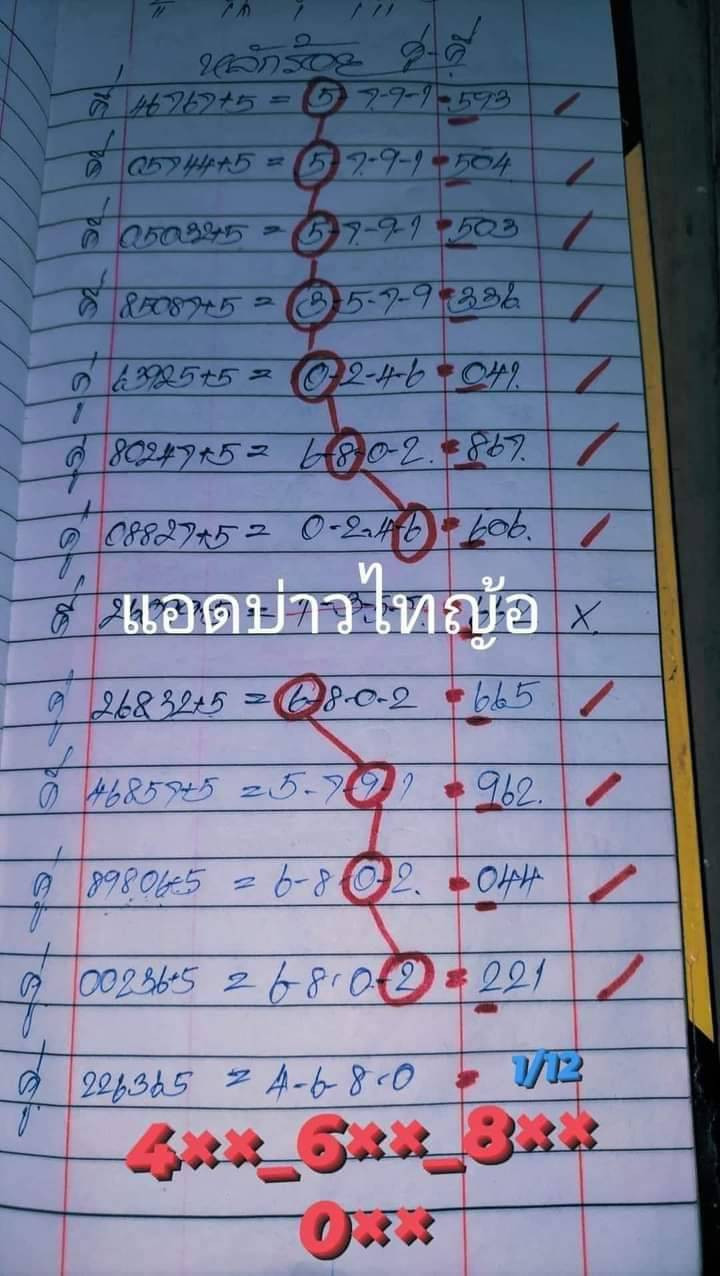 หลักร้อย คู่-คี่
คี่ 46767+5 = 5-7-9-1 = 593 /
คี่ 05744+5 = 5-7-9-1 = 504 /
คี่ 05032+5 = 5-7-9-1 = 503 /
คี่ 85087+5 = 3-5-7-9 = 336 /
คู่ 63925+5 = 0-2-4-6 = 041 /
คู่ 80247+5 = 6-8-0-2. = 867. /
คู่ 08827+5 = 0-2-4-6 = 606. /
แอดบ่าวไทญ้อ
คี่ X
คู่ 26832+5 = 6-8-0-2 = 665 /
คี่ 46857+5 = 5-7-9-1 = 962. /
คู่ 89806+5 = 6-8-0-2. = 044 /
คู่ 00236+5 = 6-8-0-2 = 221 /
คู่ 226365 = 4-6-8-0 = 1/12
4××_6××_8××
0××